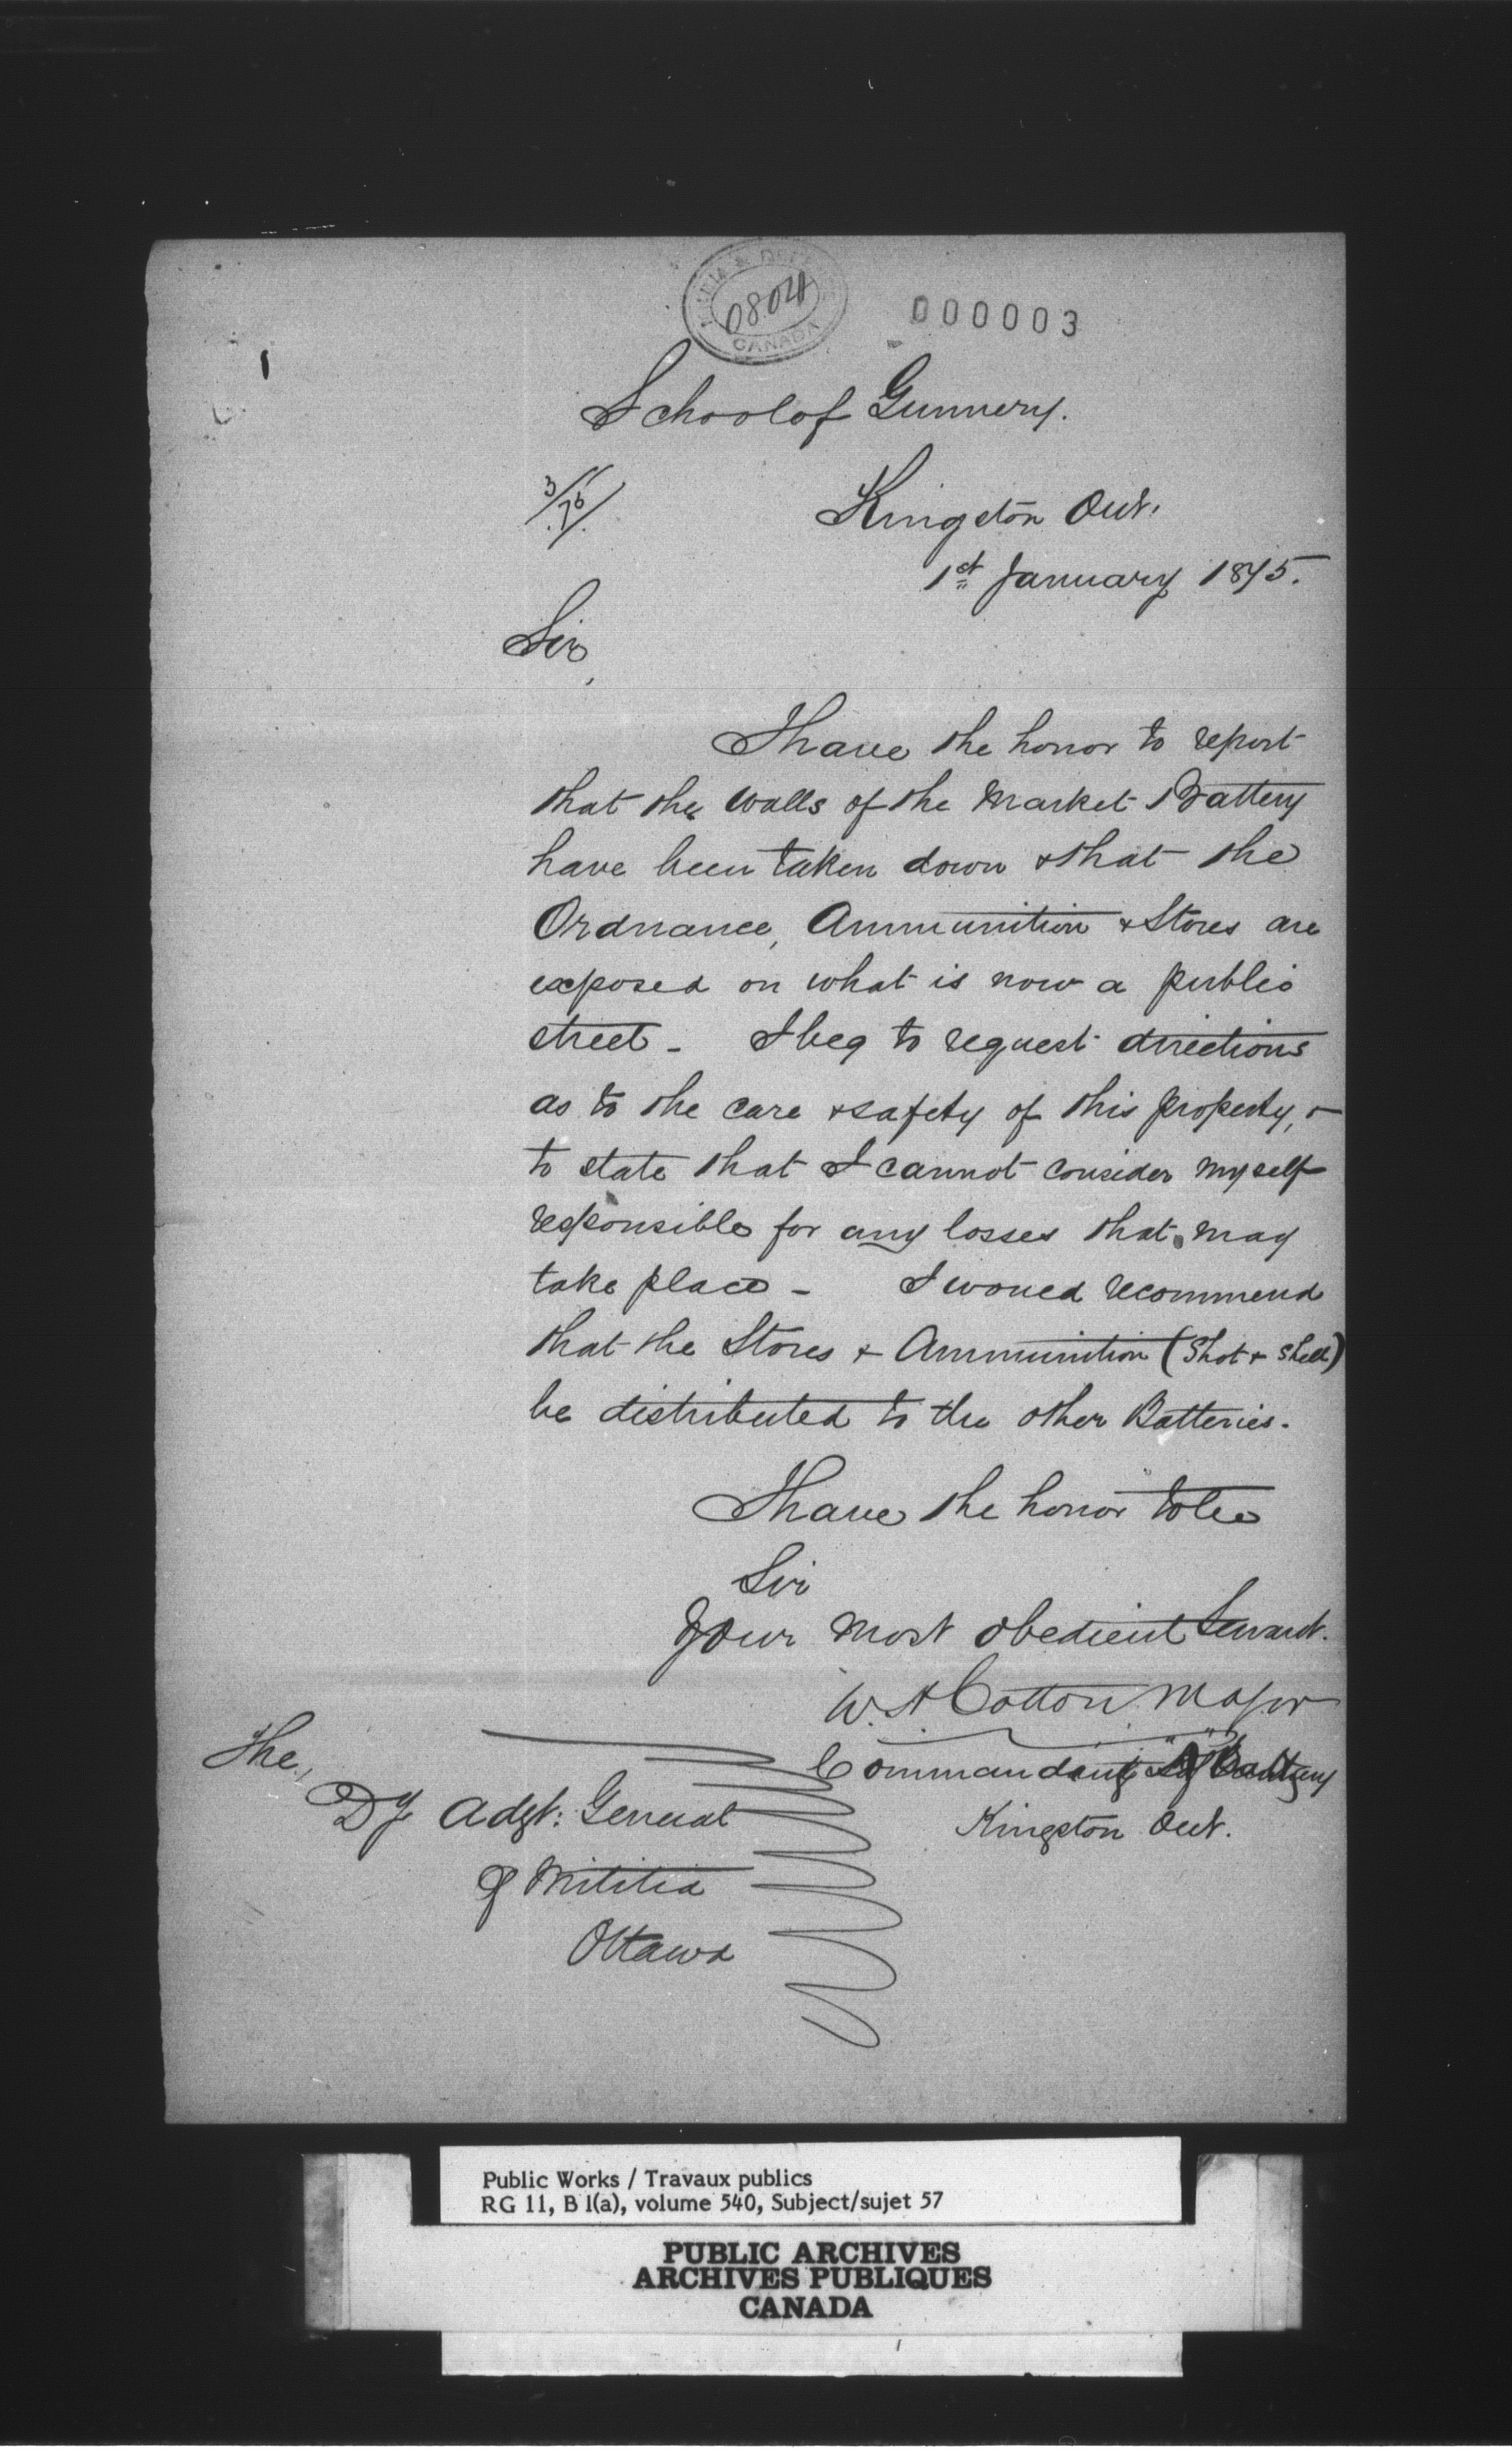 MILITIA & DEFENCE
0804
CANADA
000003
1
School of Gunnery.
3/76
Kingston Ont.
1st January 1875.
Sir,
I have the honor to report
that the walls of the Market Battery
have been taken down & that the
Ordnance, Ammunition & Stores are
exposed on what is now a public
street - I beg to request directions
as to the care & safety of this property, &
to state that I cannot consider myself
responsible for any losses that may
take place - I would recommend
that the Stores & Ammunition (Shot & Shell)
be distributed to the other Batteries.
I have the honor to be
Sir
Your most obedient Servant.
W. H Cotton Major
Commanding "A" Battery
Kingston Ont.
The,
Dy Adgt: General
of Militia
Ottawa
Public Works / Travaux publics
RG 11, B 1(a), volume 540, Subject/sujet 57
PUBLIC ARCHIVES
ARCHIVES PUBLIQUES
CANADA